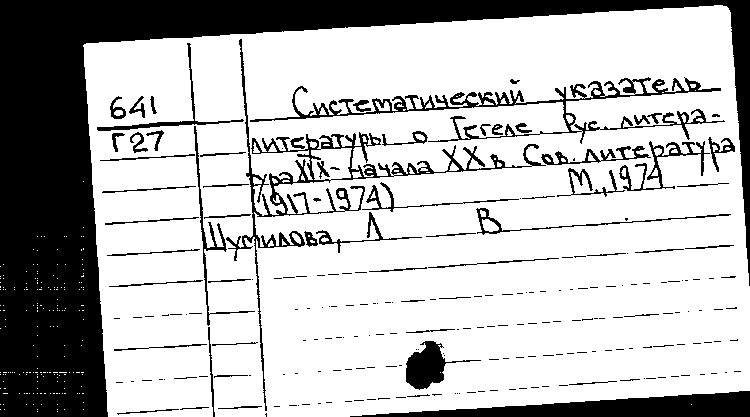 641
Г27
Систематический указатель
литературы о Гегеле. Рус. литера-
тура XIX - начала XX в. Сов. литература
(1917-1974) М., 1974
Шумилова, Л В